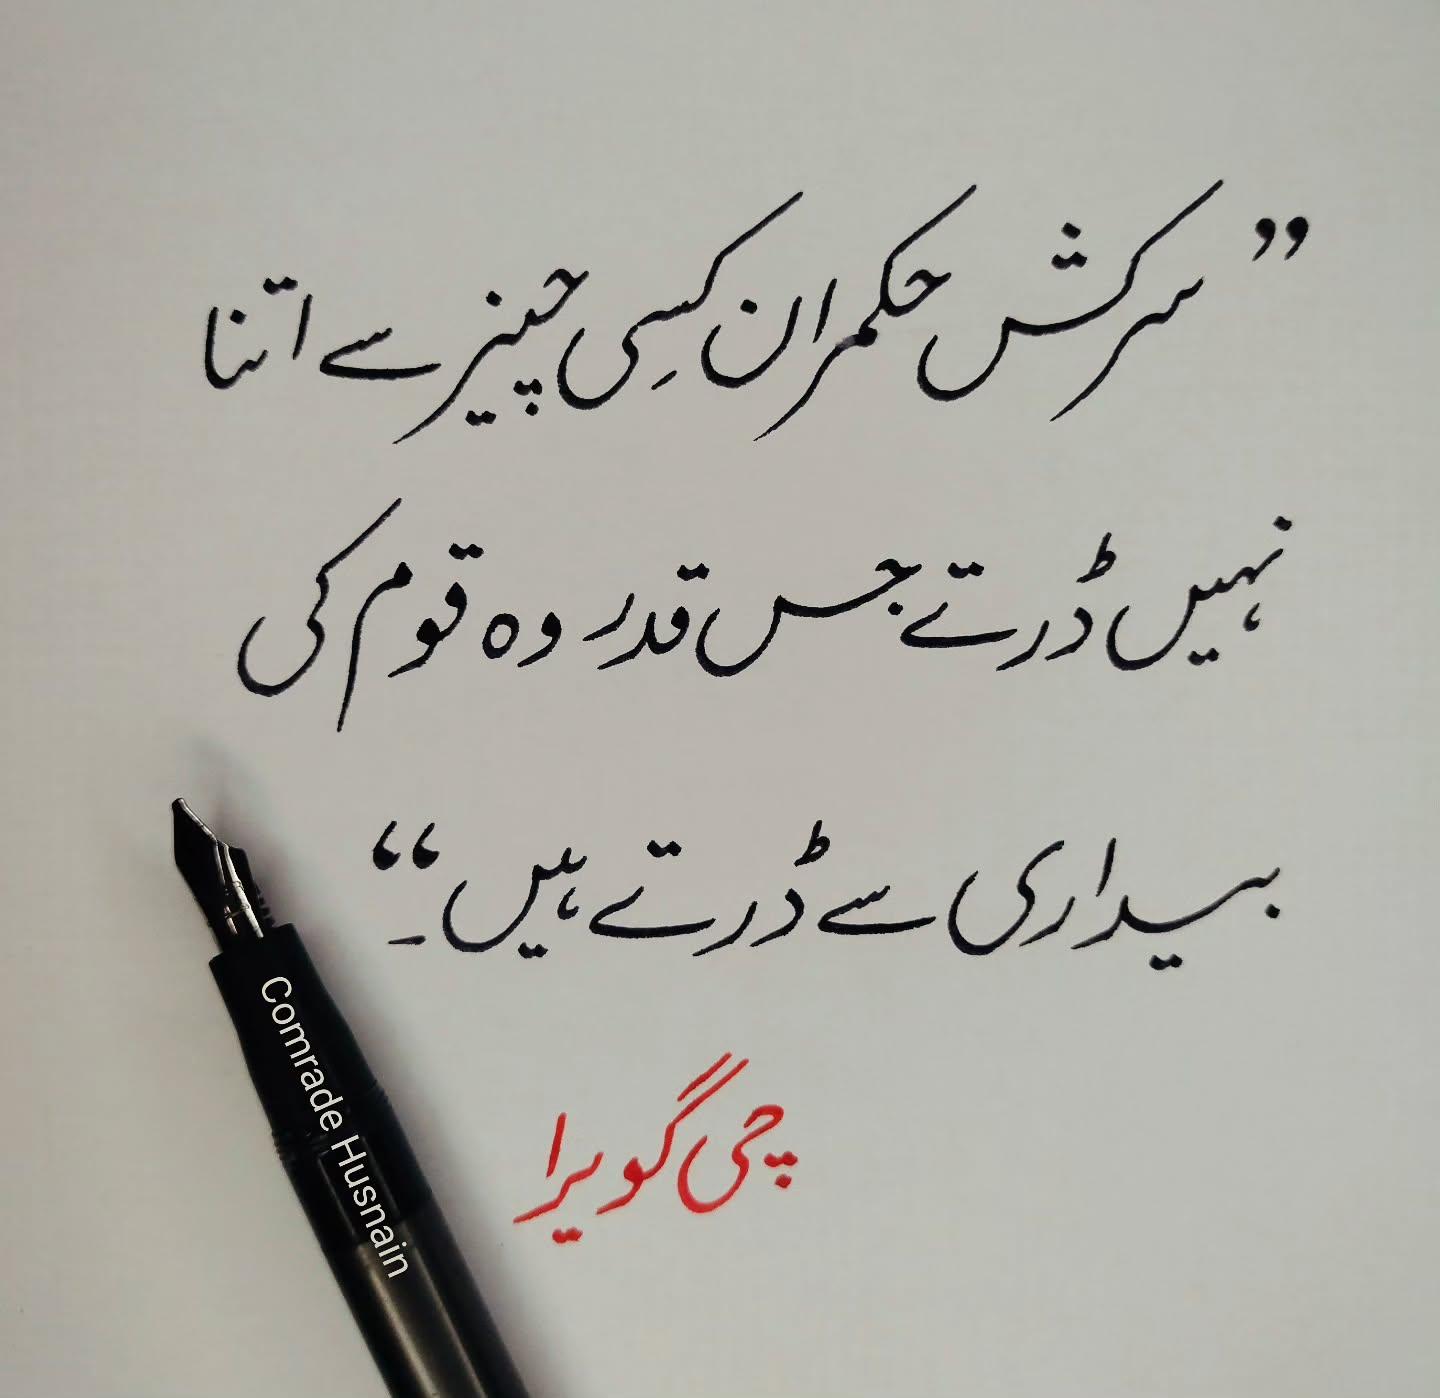 ”سرکش حکمران کسِی چیز سے اتنا
نہیں ڈرتے جس قدر وہ قوم کی
بیداری سے ڈرتے ہیں۔“
چی گویرا
Comrade Husnain